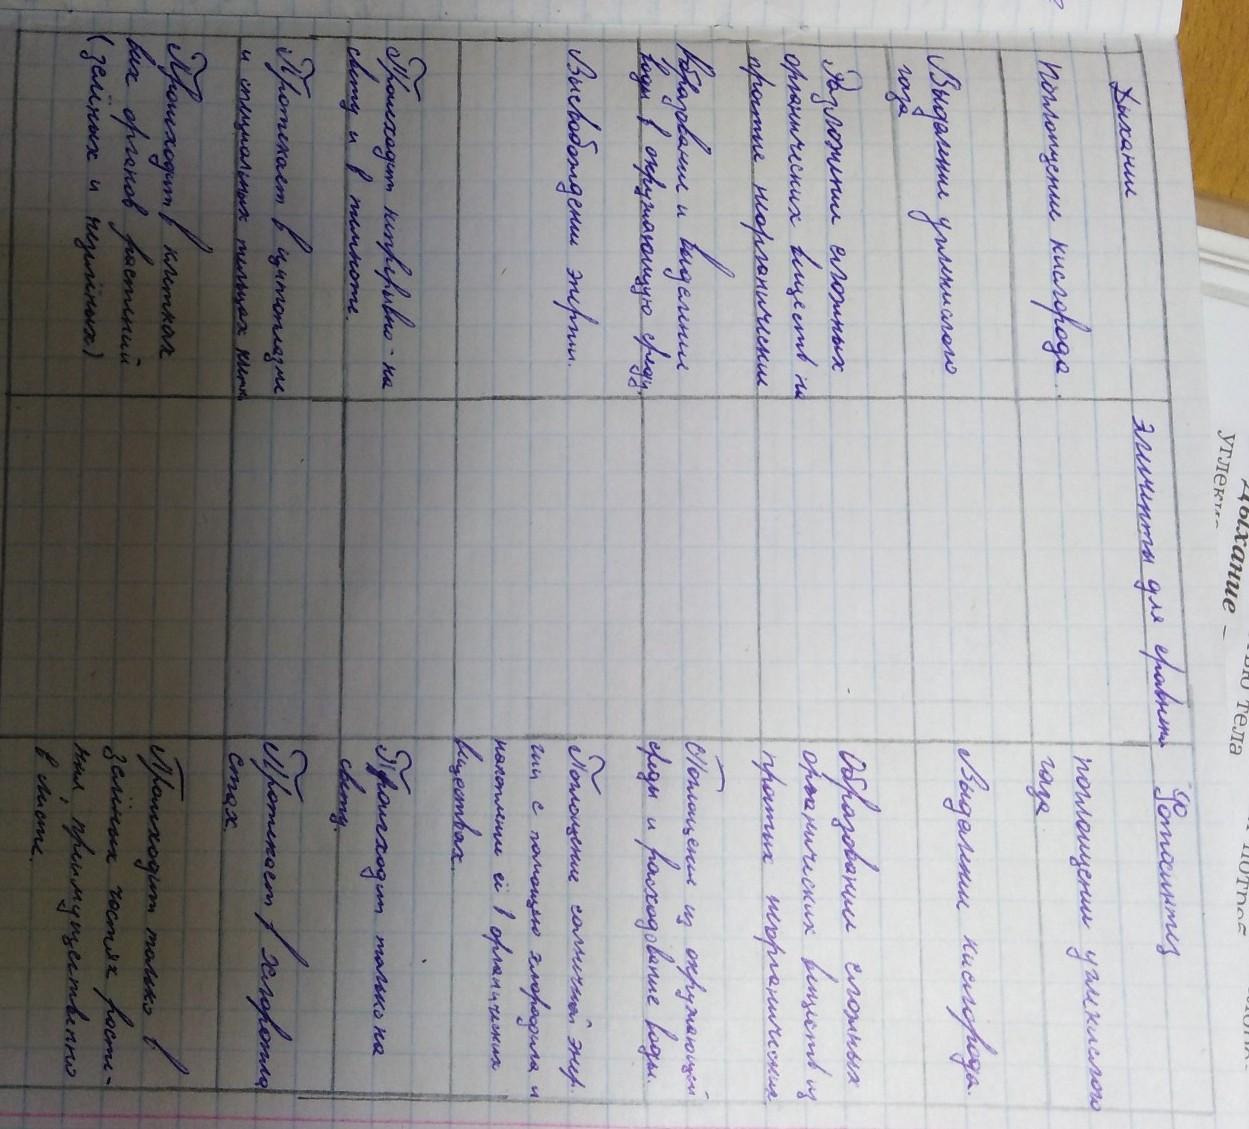 Дыхание
Элементы для сравнен.
Фотосинтез
Поглощение кислорода.
поглощение углекислого
газа
Выделение углекислого
газа
Выделение кислорода.
Разложение сложных
органических веществ на
простые неорганические
Образование сложных
органических веществ из
простых неорганические
Образование и выделение
воды в окружающую среду.
Поглощение из окружающей
среды и расходование воды.
Высвобождение энергии.
Поглощение солнечной энер.
гии с помощью хлорофила и
накопление её в органических
веществах.
Происходит непрерывно - на
свету и в темноте.
Происходит только на
свету.
Протекает в цитоплазме
и специальных тельцах клетк
Протекает в хлоропла
стах.
Происходит в клетках
всех органов растений
(зелёных и незелёных)
Происходит только в
зелёных частях расте-
ния, преимущественно
в листе.
Дыхание –
углеки
тела